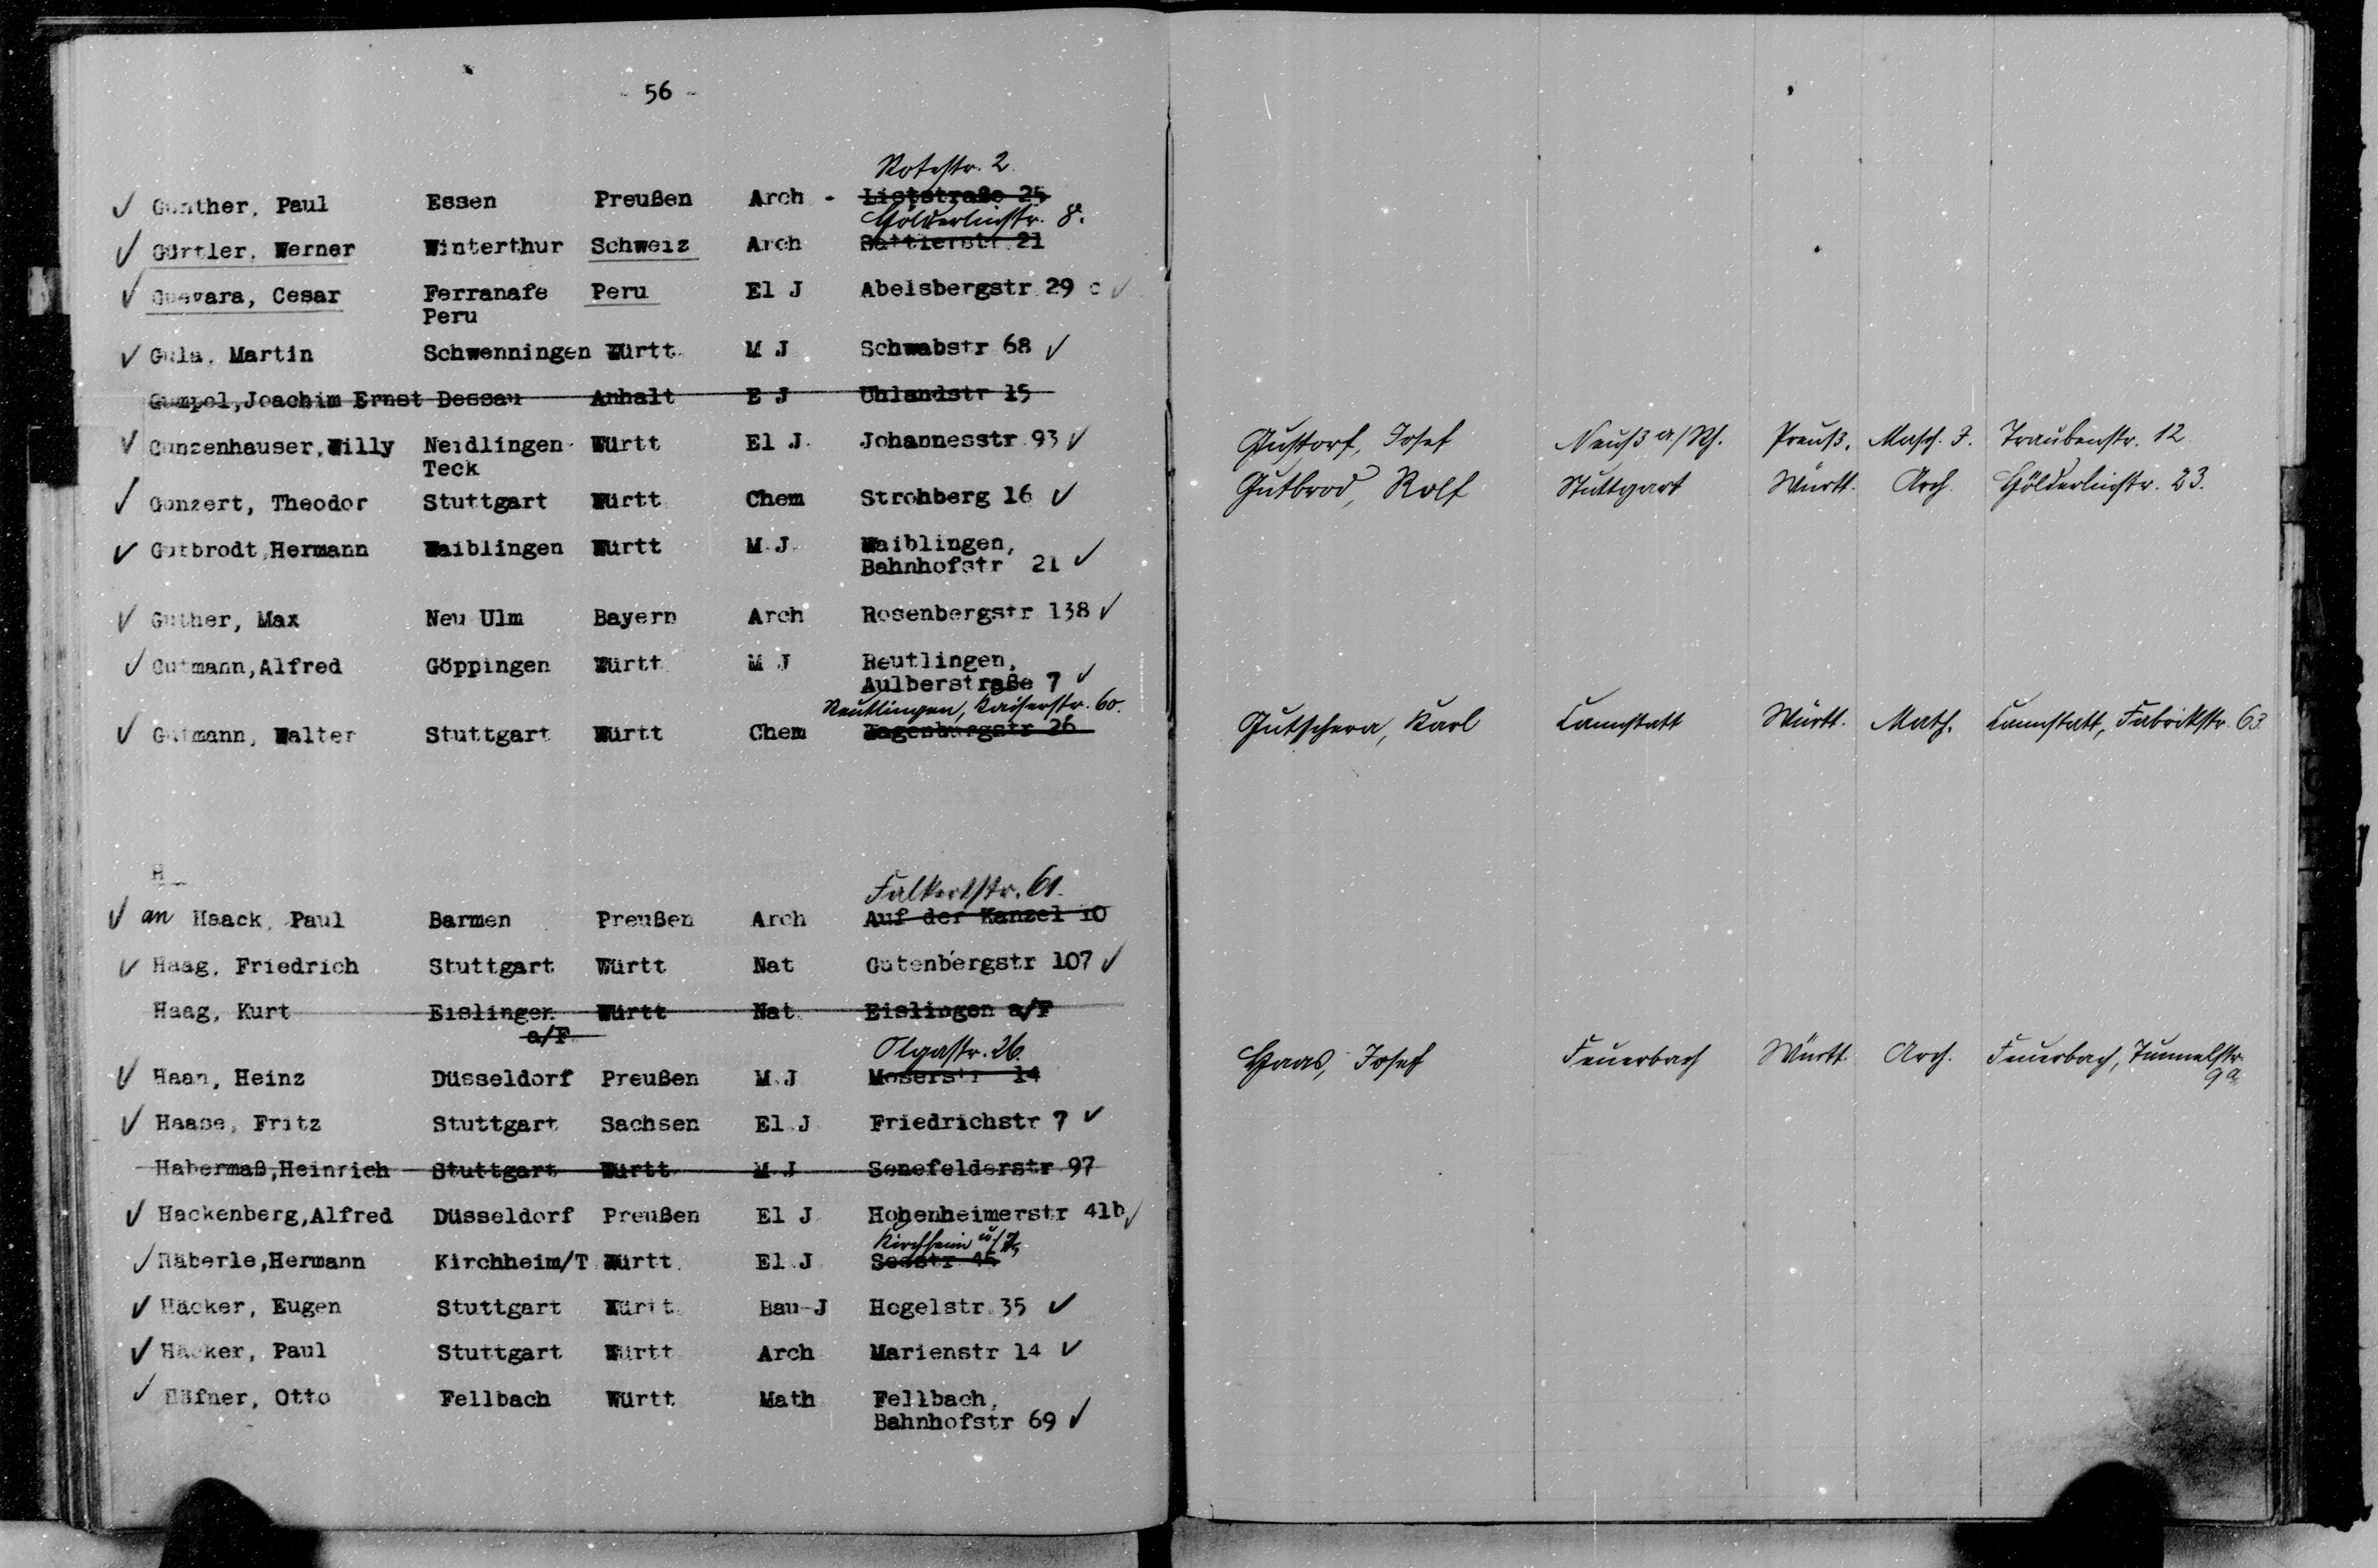 - 56 -
Rotestr. 2.
Günther, Paul Essen Preußen Arch - Liststraße 25
Hölderlinstr. 8.
Gürtler, Werner Winterthur Schweiz Arch Sattlerstr 21
Guevara, Cesar Ferranafe Peru El J Abelsbergstr 29 c
Peru
Gula, Martin Schwenningen Württ M J Schwabstr 68
Gumpel, Joachim Ernst Dessau Anhalt E J Uhlandstr 15
Gunzenhauser, Willy Neidlingen Württ El J. Johannesstr 93
Teck
Gunzert, Theodor Stuttgart Württ Chem Strohberg 16
Gutbrodt, Hermann Waiblingen Württ M.J. Waiblingen,
Bahnhofstr 21
Guther, Max Neu Ulm Bayern Arch Rosenbergstr 138
Gutmann, Alfred Göppingen Württ M J Reutlingen,
Aulberstraße 7
Reutlingen, Kaiserstr. 60.
Gutmann, Walter Stuttgart Württ Chem Wagenburgstr 26
H
Falkertstr. 61.
an Haack, Paul Barmen Preußen Arch Auf der Kanzel 10
Haag, Friedrich Stuttgart Württ Nat Gutenbergstr 107
Haag, Kurt Eislingen Württ Nat. Eislingen a/F
a/F
Olgastr. 26.
Haan, Heinz Düsseldorf Preußen M.J Moserstr 14
Haase, Fritz Stuttgart Sachsen El.J Friedrichstr 7
Habermaß, Heinrich Stuttgart Württ M J Senefelderstr 97
Hackenberg, Alfred Düsseldorf Preußen El J Hohenheimerstr 41b
Kirchheim u/T.
Häberle, Hermann Kirchheim/T Württ. El.J Seestr 45
Häcker, Eugen Stuttgart Württ. Bau-J Hegelstr. 35
Häcker, Paul Stuttgart Württ Arch Marienstr 14
Häfner, Otto Fellbach Württ Math Fellbach,
Bahnhofstr 69
Gustorf, Josef Neuß a/Rh. Preuß. Masch. J. Traubenstr. 12
Gutbrod, Rolf Stuttgart Württ. Arch. Hölderlinstr. 23.
Gutschera, Karl Cannstatt Württ. Math. Cannstatt, Fabrikstr. 63
Haas, Josef Feuerbach Württ. Arch. Feuerbach, Tunnelstr.
9a